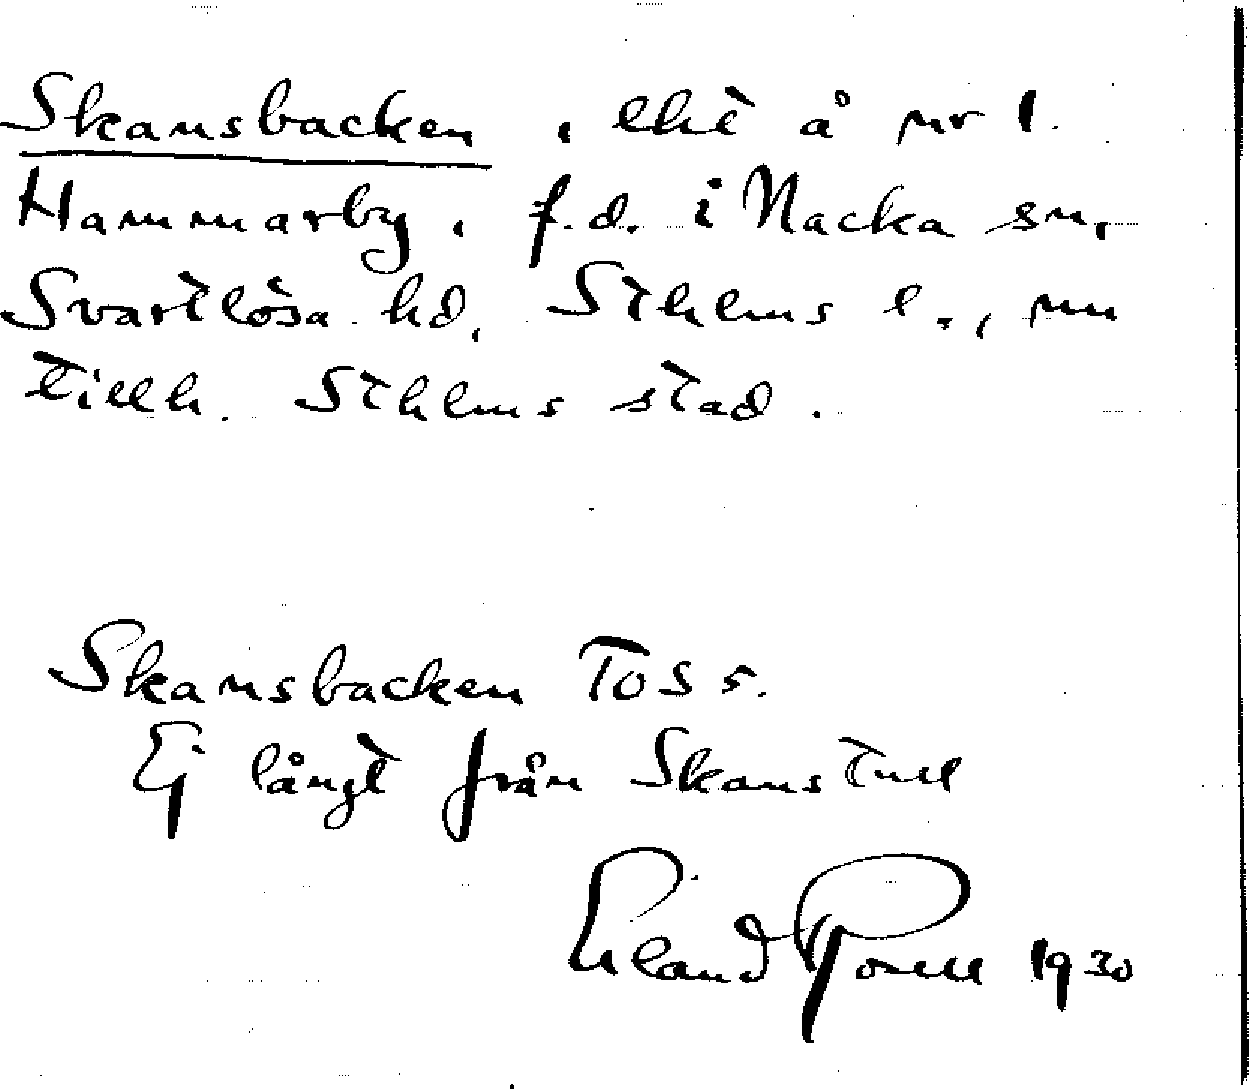 Skansbacken, lht å nr 1
Hammarby, f.d. i Nacka sn,
Svartlösa hd, Sthlms l., nu
tillh. Sthlms stad.
Skansbacken TOS 5.
Ej långt från Skanstull
Erland Rosell 1930